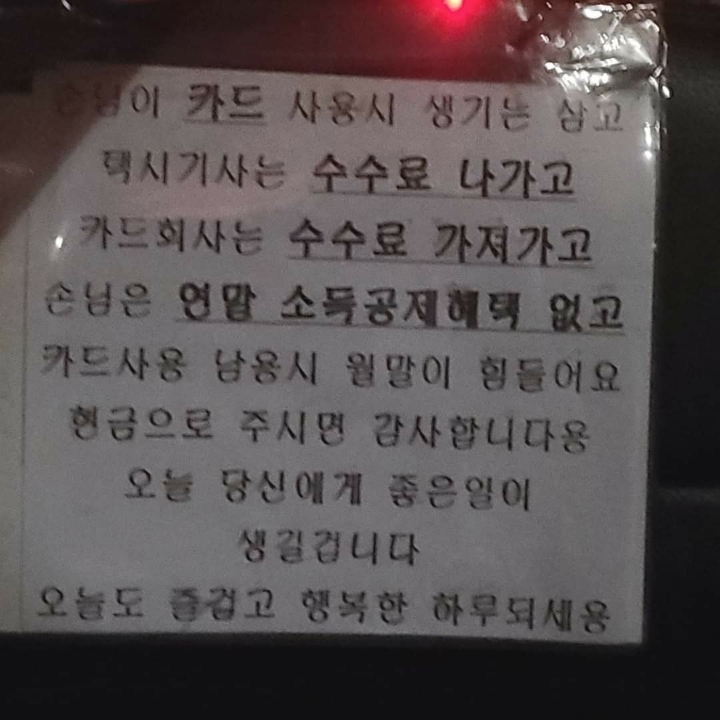 손님이 카드 사용시 생기는 삼고
택시기사는 수수료 나가고
카드회사는 수수료 가져가고
손님은 연말 소득공제혜택 없고
카드사용 남용시 월말이 힘들어요
현금으로 주시면 감사합니다용
오늘 당신에게 좋은일이
생길겁니다
오늘도 즐겁고 행복한 하루되세용